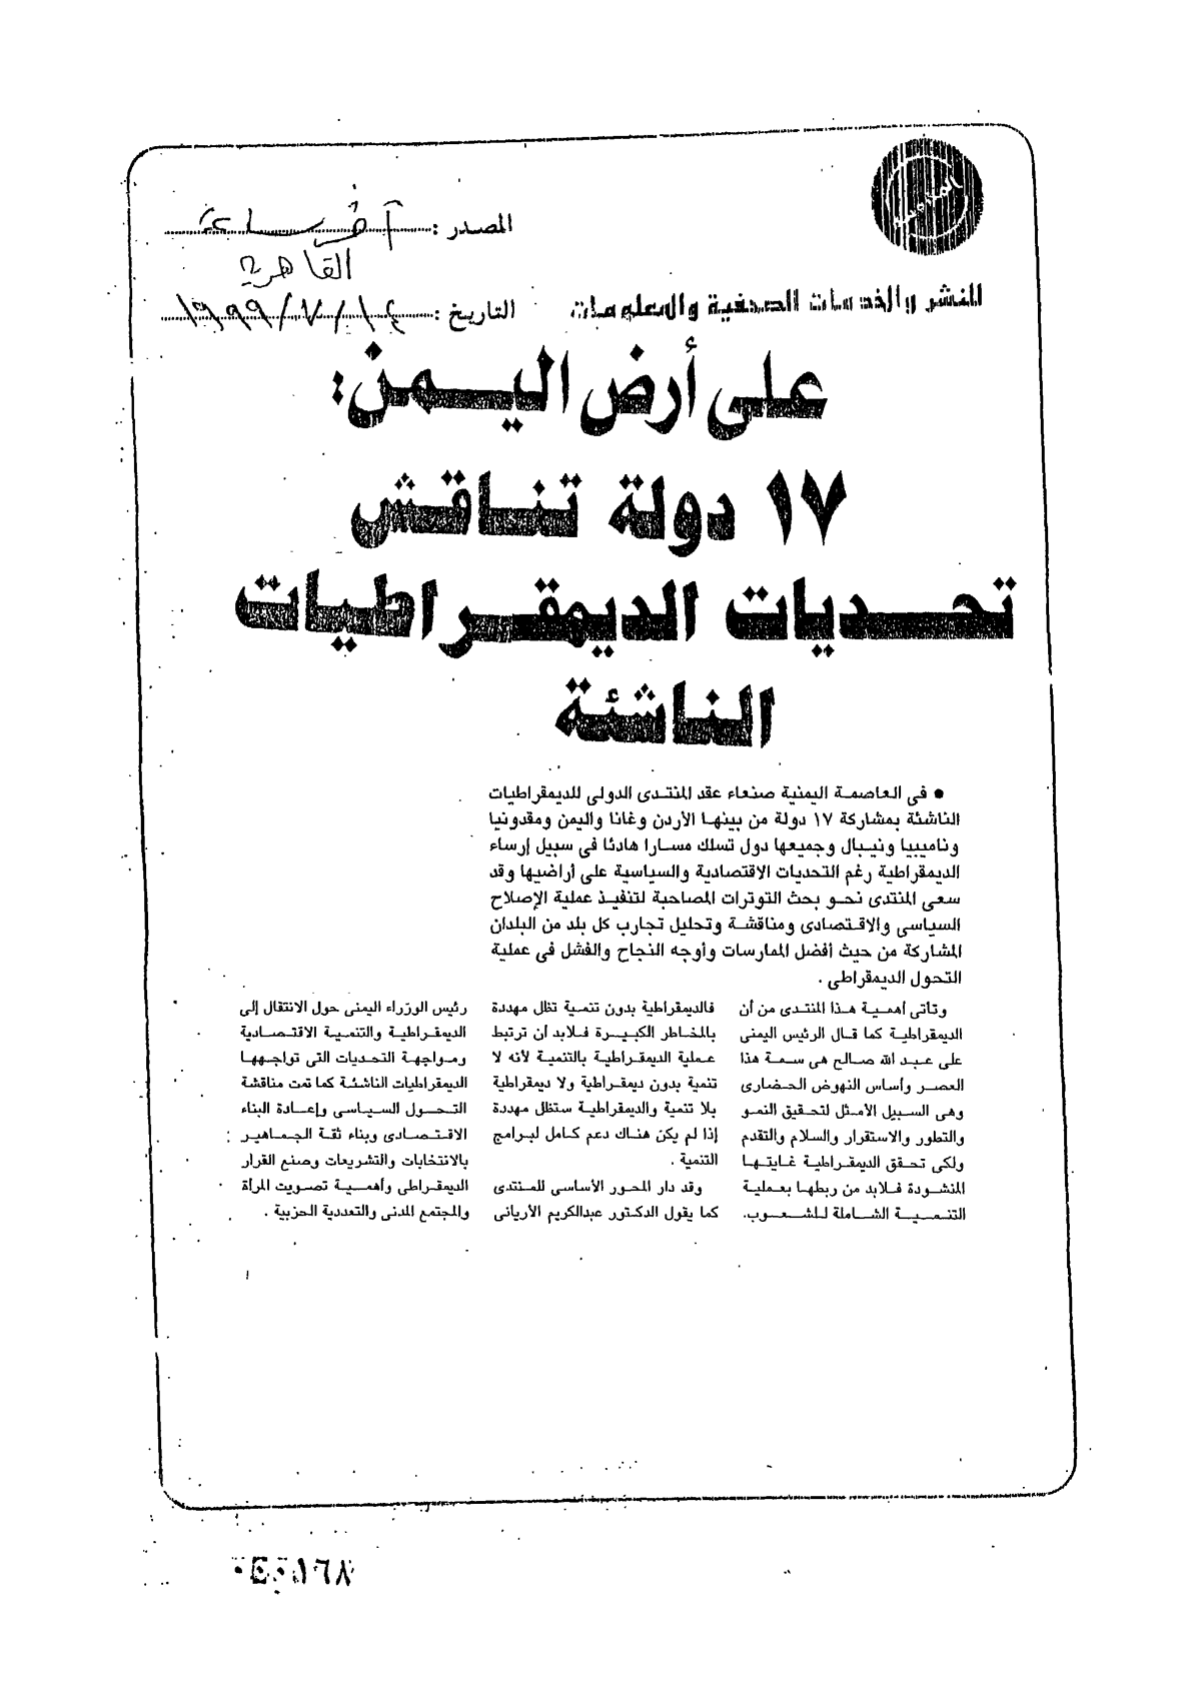 المصدر : آخر ساعة
القاهرية
للنشر والخدمات الصحفية والمعلومات
التاريخ : ١٩٩٩/٧/١٤
على أرض اليمن:
١٧ دولة تناقش
تحديات الديمقراطيات
الناشئة
● فى العاصمة اليمنية صنعاء عقد المنتدى الدولى للديمقراطيات
الناشئة بمشاركة ١٧ دولة من بينها الأردن وغانا واليمن ومقدونيا
وناميبيا ونيبال وجميعها دول تسلك مسارا هادئا فى سبيل إرساء
الديمقراطية رغم التحديات الاقتصادية والسياسية على أراضيها وقد
سعى المنتدى نحو بحث التوترات المصاحبة لتنفيذ عملية الإصلاح
السياسى والاقتصادى ومناقشة وتحليل تجارب كل بلد من البلدان
المشاركة من حيث أفضل الممارسات وأوجه النجاح والفشل فى عملية
التحول الديمقراطى .
وتأتى أهمية هذا المنتدى من أن
الديمقراطية كما قال الرئيس اليمنى
على عبد الله صالح هى سمة هذا
العصر وأساس النهوض الحضارى
وهى السبيل الأمثل لتحقيق النمو
والتطور والاستقرار والسلام والتقدم
ولكى تحقق الديمقراطية غايتها
المنشودة فلابد من ربطها بعملية
التنمية الشاملة للشعوب.
فالديمقراطية بدون تنمية تظل مهددة
بالمخاطر الكبيرة فلابد أن ترتبط
عملية الديمقراطية بالتنمية لأنه لا
تنمية بدون ديمقراطية ولا ديمقراطية
بلا تنمية والديمقراطية ستظل مهددة
إذا لم يكن هناك دعم كامل لبرامج
التنمية .
وقد دار المحور الأساسى للمنتدى
كما يقول الدكتور عبدالكريم الأريانى
رئيس الوزراء اليمنى حول الانتقال إلى
الديمقراطية والتنمية الاقتصادية
ومواجهة التحديات التى تواجهها
الديمقراطيات الناشئة كما تمت مناقشة
التحول السياسى وإعادة البناء
الاقتصادى وبناء ثقة الجماهير
بالانتخابات والتشريعات وصنع القرار
الديمقراطى وأهمية تصويت المرأة
والمجتمع المدنى والتعددية الحزبية .